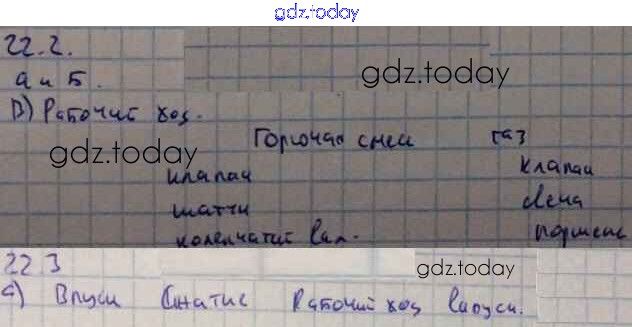 gdz.today
22.2.
а и Б.
gdz.today
В) Рабочий ход.
Горючая смесь газ
gdz.today
клапан клапан
шатун свеча
коленчатый вал. поршень
22 3
gdz.today
а) Впуск Сжатие Рабочий ход выпуск.